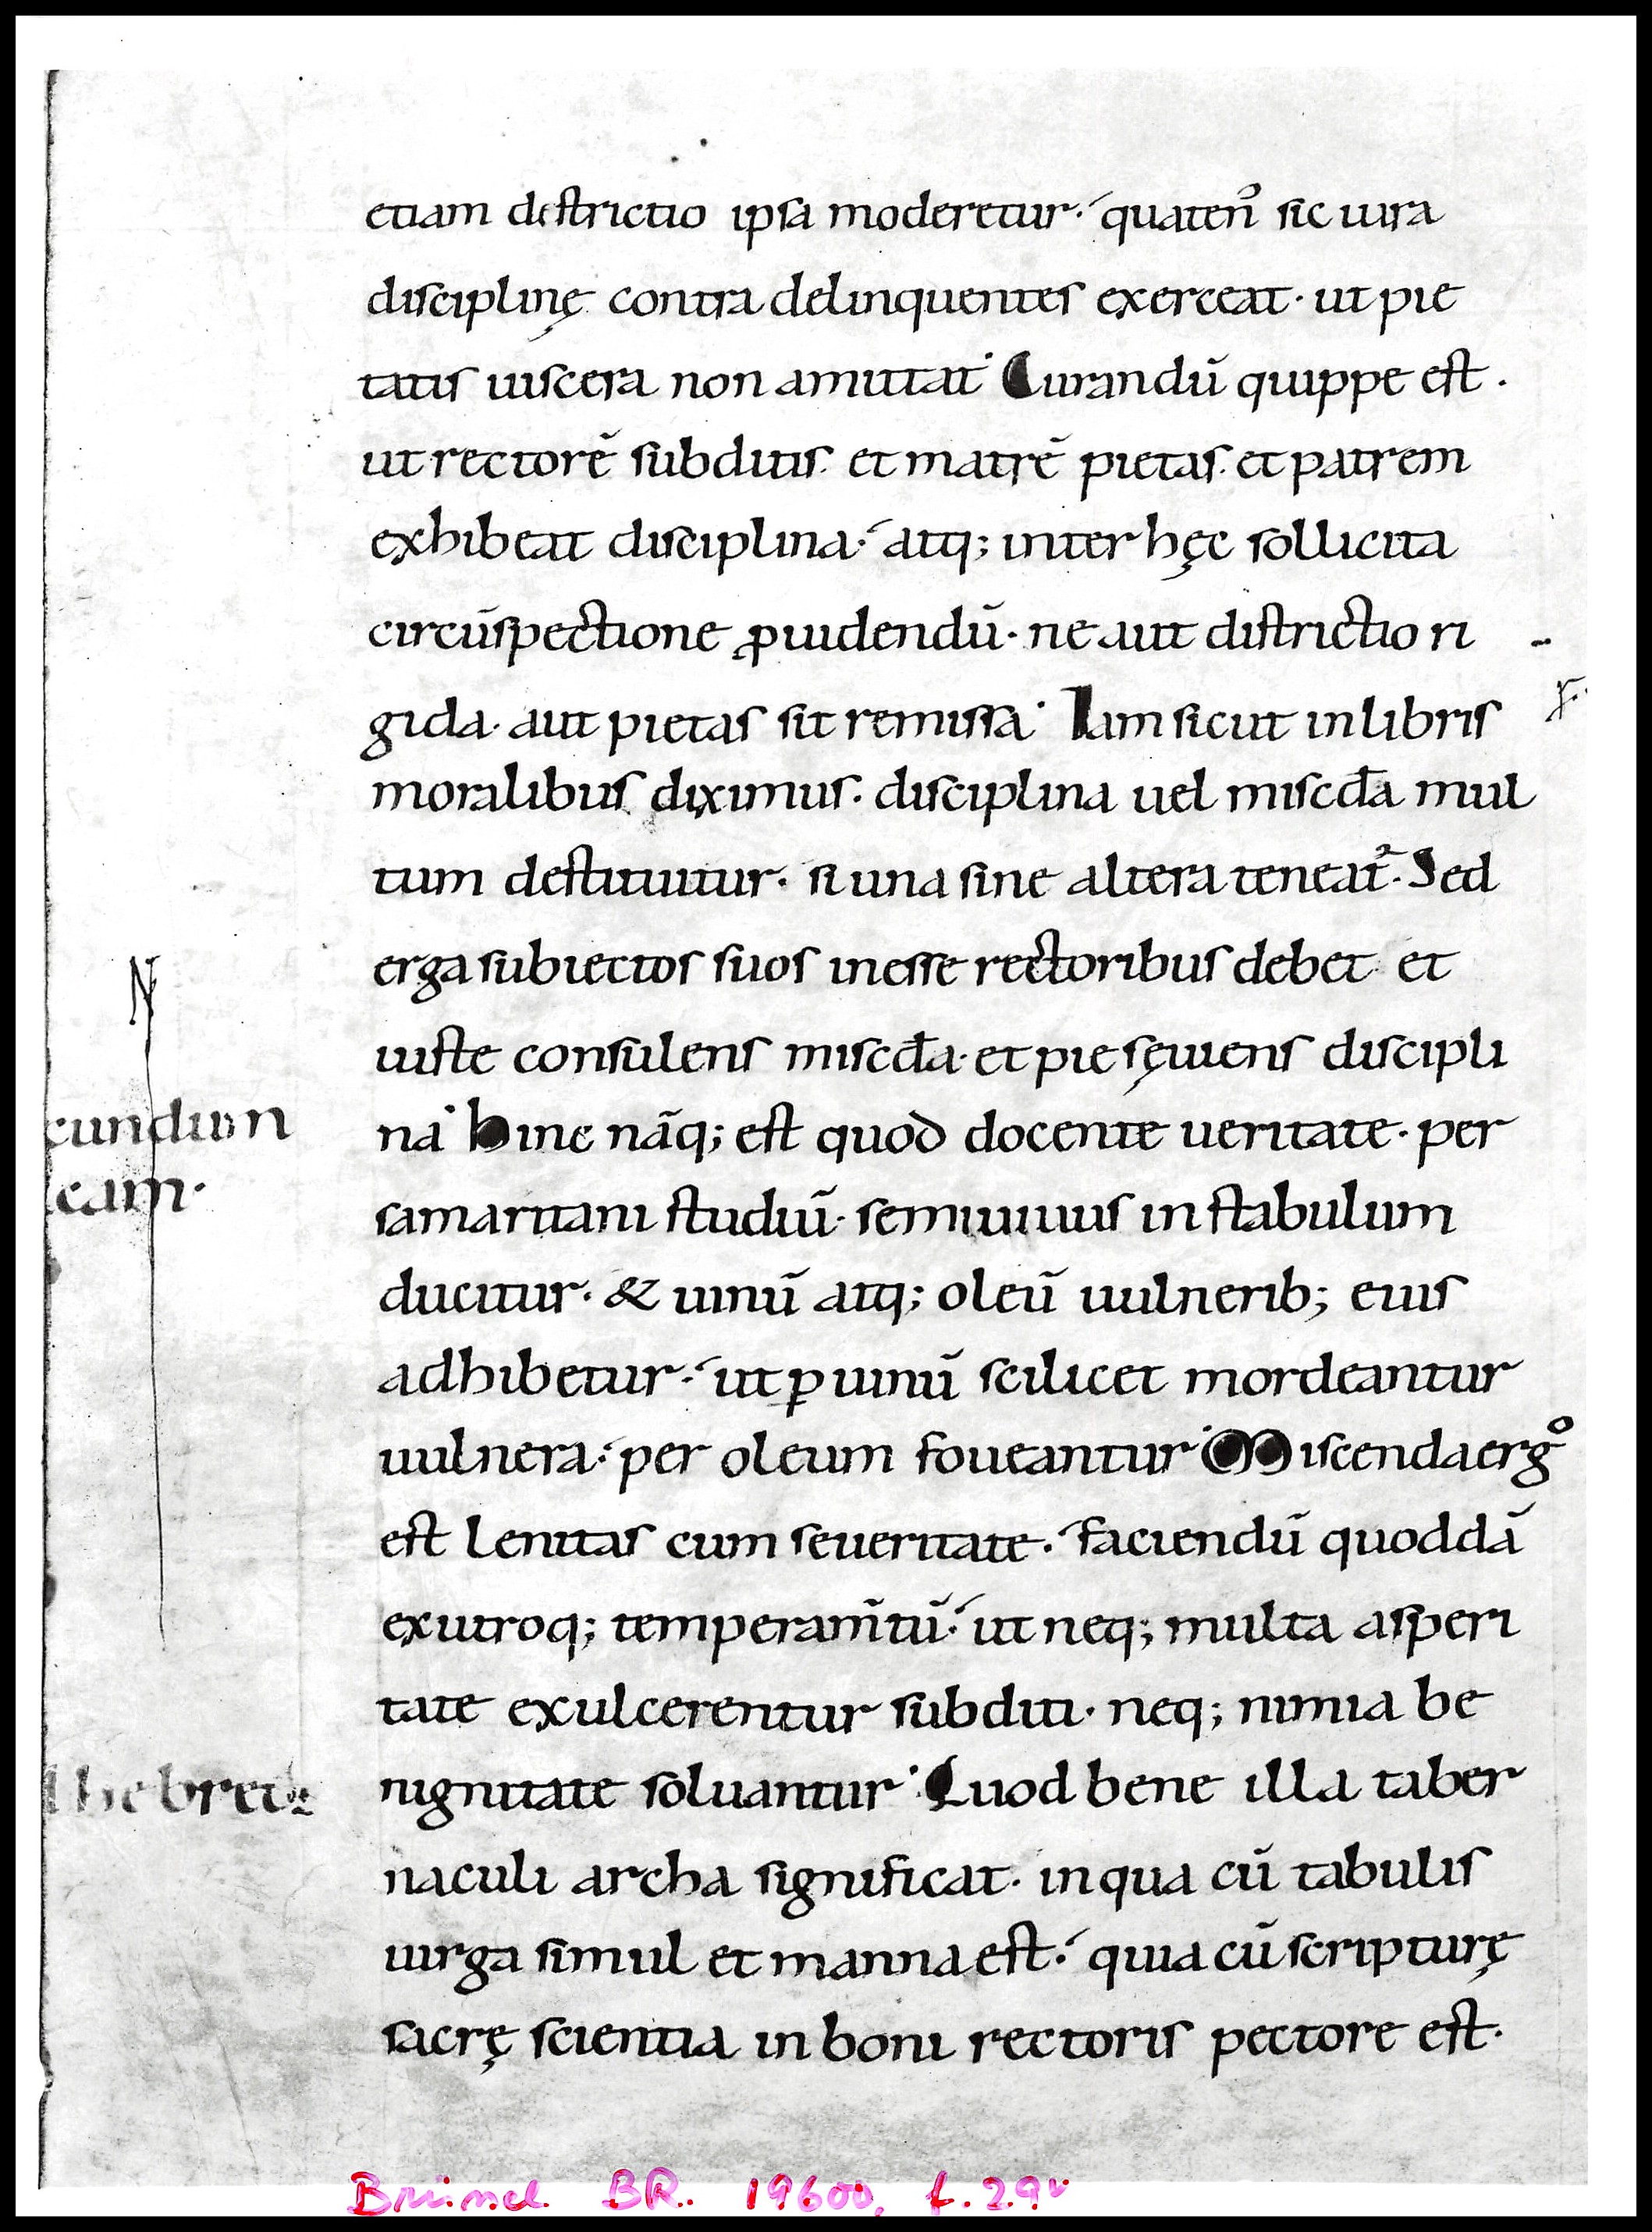 etiam destrictio ipsa moderetur· quaten᾽ sic uira
disciplinę contra delinquentes exerceat· ut pie
tatis uiscera non amittat· Curandū quippe est·
ut rectorē subditis· et matrē pietas· et patrem
exhibeat disciplina· atq; inter hęc sollicita
circūspectione ꝓuidendū· ne aut districtio ri
gida· aut pietas sit remissa· Iam sicut in libris
moralibus diximus· disciplina uel miscd̄a mul
tum destituitur· si una sine altera teneat᷑· Sed
erga subiectos suos inesse rectoribus debet· et
iuste consulens miscd̄a· et pie sęuiens discipli
na· hinc nāq; est quod docente ueritate· per
cundum
samaritani studiū· semiuiuus in stabulum
cam·
ducitur· & uinū atq; oleū uulnerib; eius
adhibetur· ut ꝑ uinū scilicet mordeantur
uulnera· per oleum foueantur· Miscenda ergͦ
est lenitas cum seueritate· faciendū quoddā
ex utroq; temperam̄tū· ut neq; multa asperi
tate exulcerentur subditi· neq; nimia be
nignitate soluantur· Quod bene illa taber
naculi archa significat· in qua cū tabulis
uirga simul et manna est· quia cū scripturę
sacrę scientia in boni rectoris pectore est·
BR. 19600, f. 29v